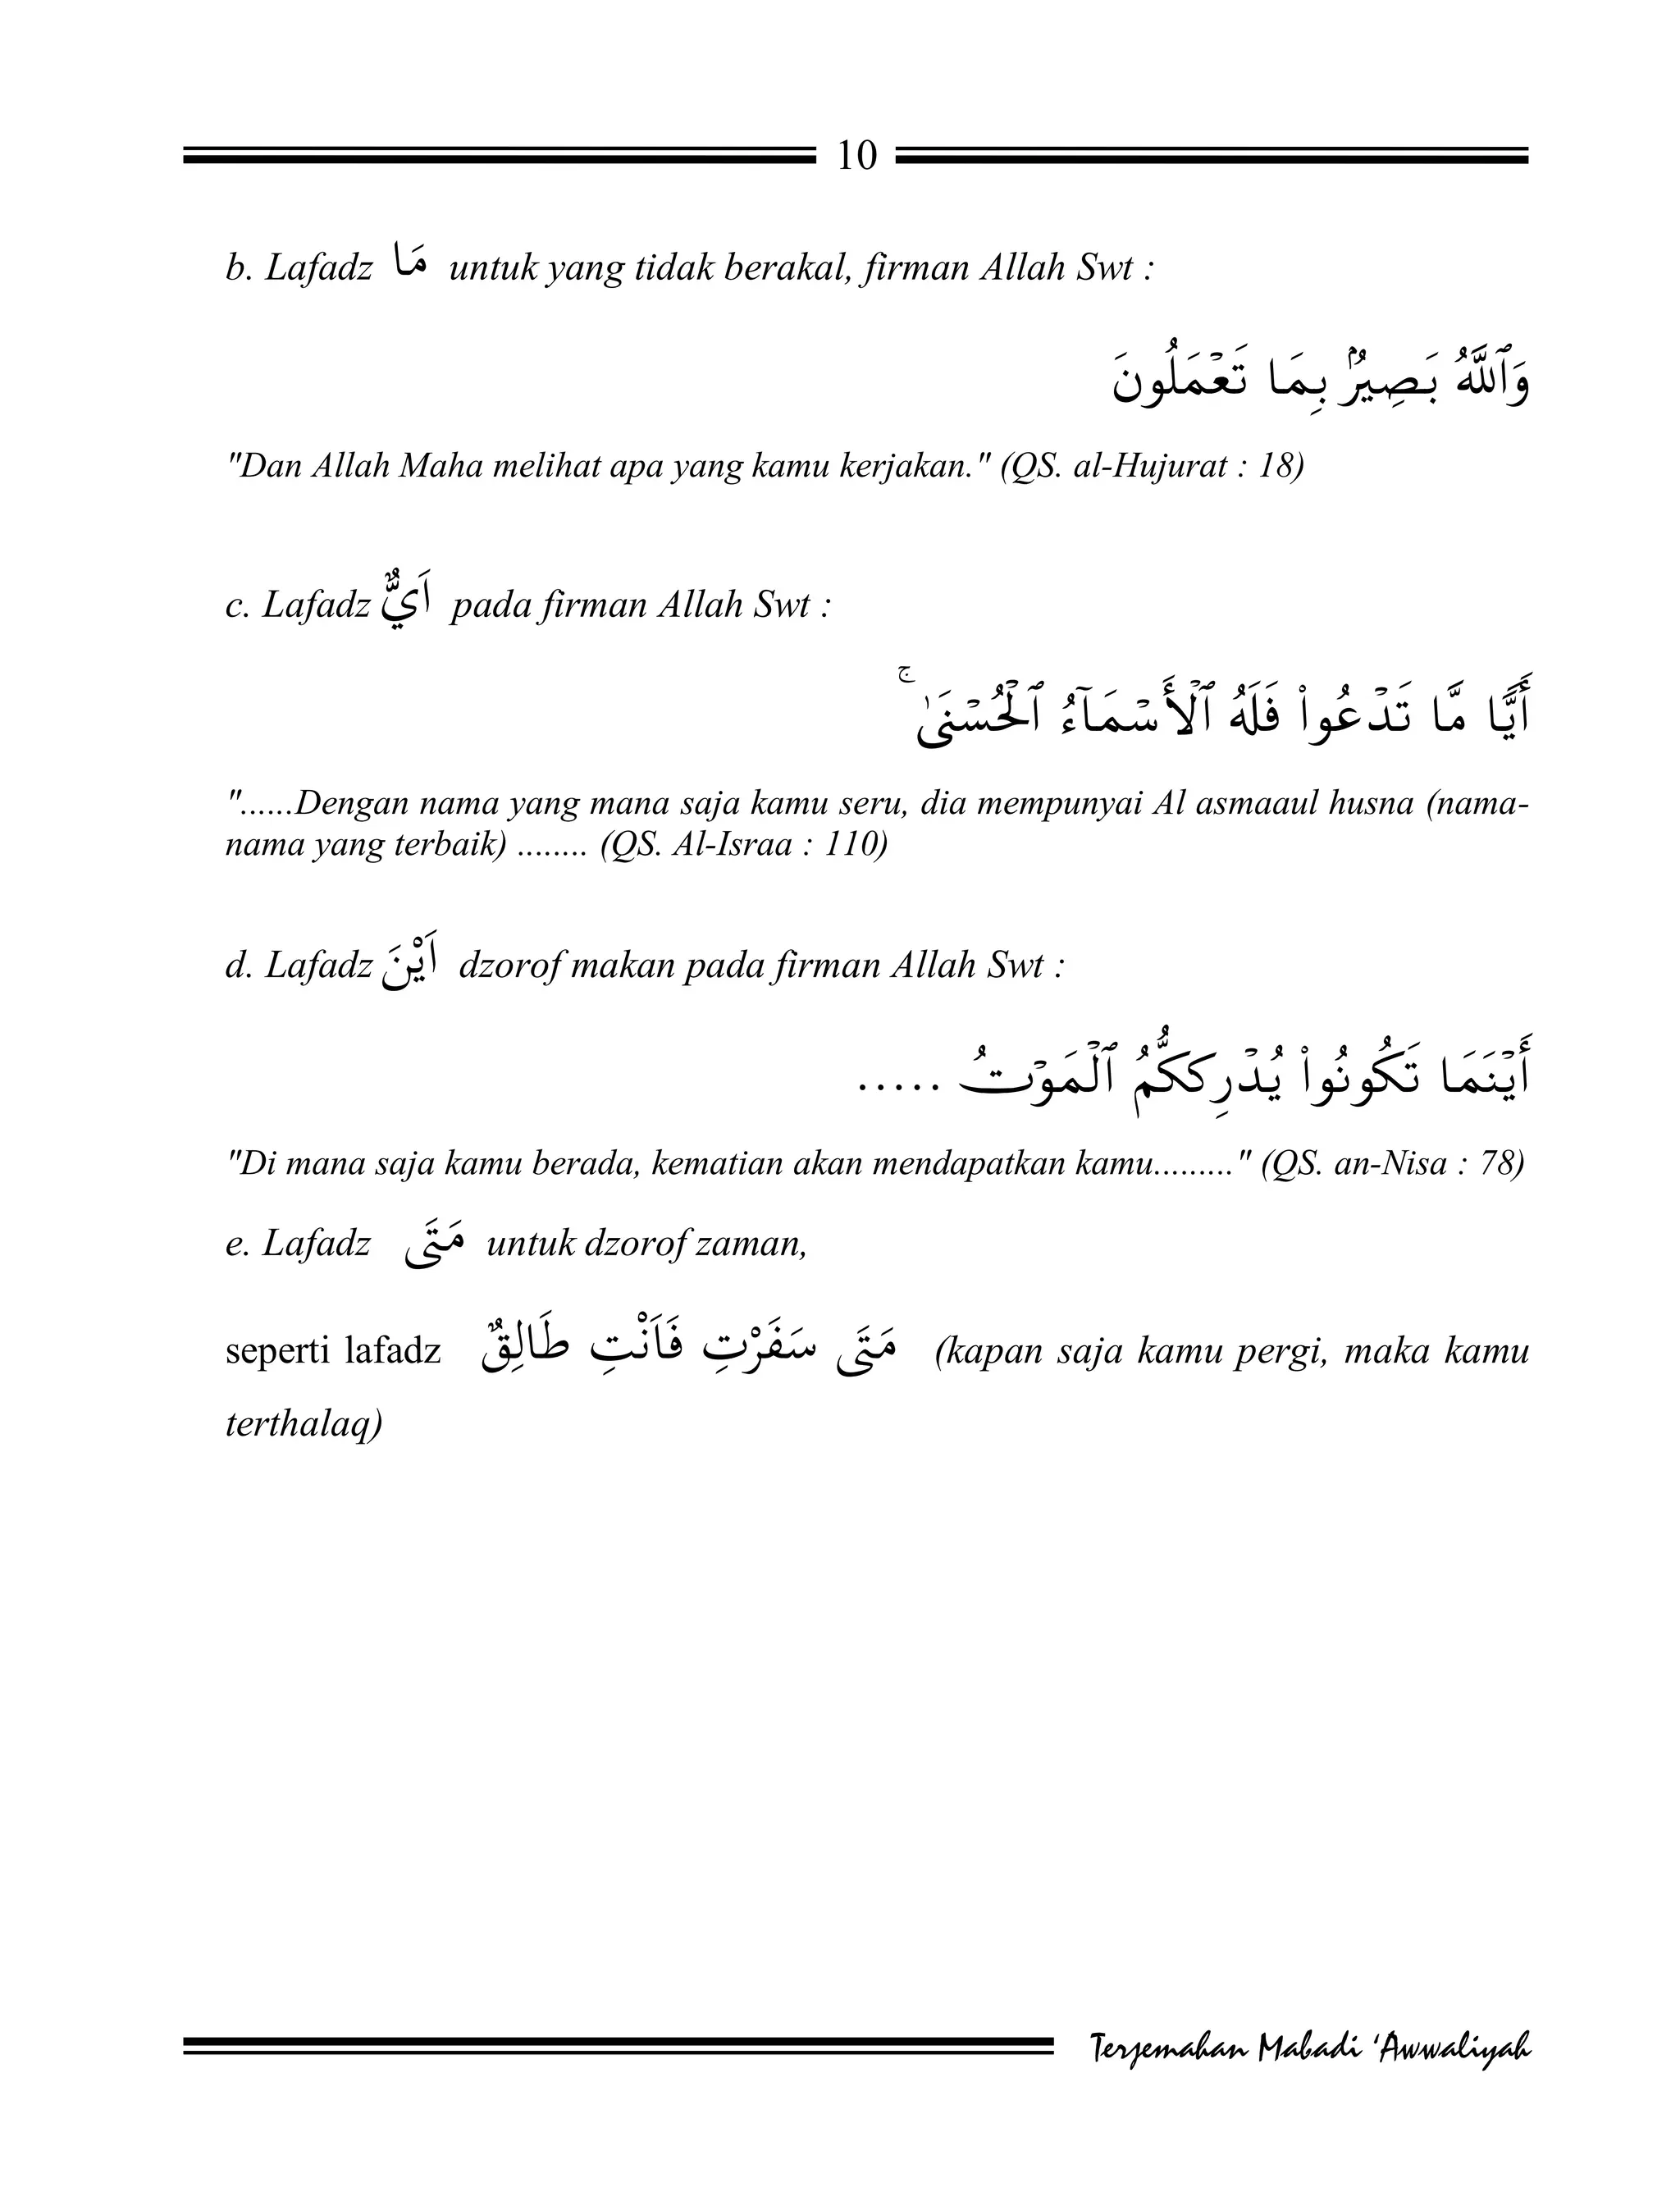 10
b. Lafadz مَا untuk yang tidak berakal, firman Allah Swt :
وَٱللَّهُ بَصِيرُۢ بِمَا تَعۡمَلُونَ
"Dan Allah Maha melihat apa yang kamu kerjakan." (QS. al-Hujurat : 18)
c. Lafadz اَيٌّ pada firman Allah Swt :
أَيًّا مَّا تَدۡعُواْ فَلَهُ ٱلۡأَسۡمَآءُ ٱلۡحُسۡنَىٰۚ
"......Dengan nama yang mana saja kamu seru, dia mempunyai Al asmaaul husna (nama-
nama yang terbaik) ........ (QS. Al-Israa : 110)
d. Lafadz اَيْنَ dzorof makan pada firman Allah Swt :
أَيۡنَمَا تَكُونُواْ يُدۡرِككُّمُ ٱلۡمَوۡتُ .....
"Di mana saja kamu berada, kematian akan mendapatkan kamu........." (QS. an-Nisa : 78)
e. Lafadz مَتَى untuk dzorof zaman,
seperti lafadz مَتَى سَفَرْتِ فَاَنْتِ طَالِقٌ (kapan saja kamu pergi, maka kamu
terthalaq)
Terjemahan Mabadi ‘Awwaliyah